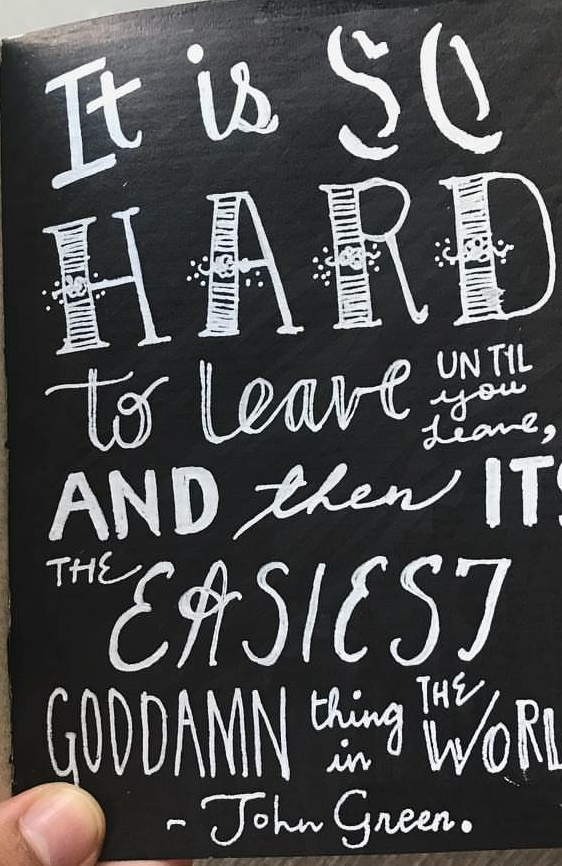 It is SO
HARD
to leave UNTIL
you
leave,
AND then ITS
THE EASIEST
GODDAMN thing THE
in WORL
- John Green.